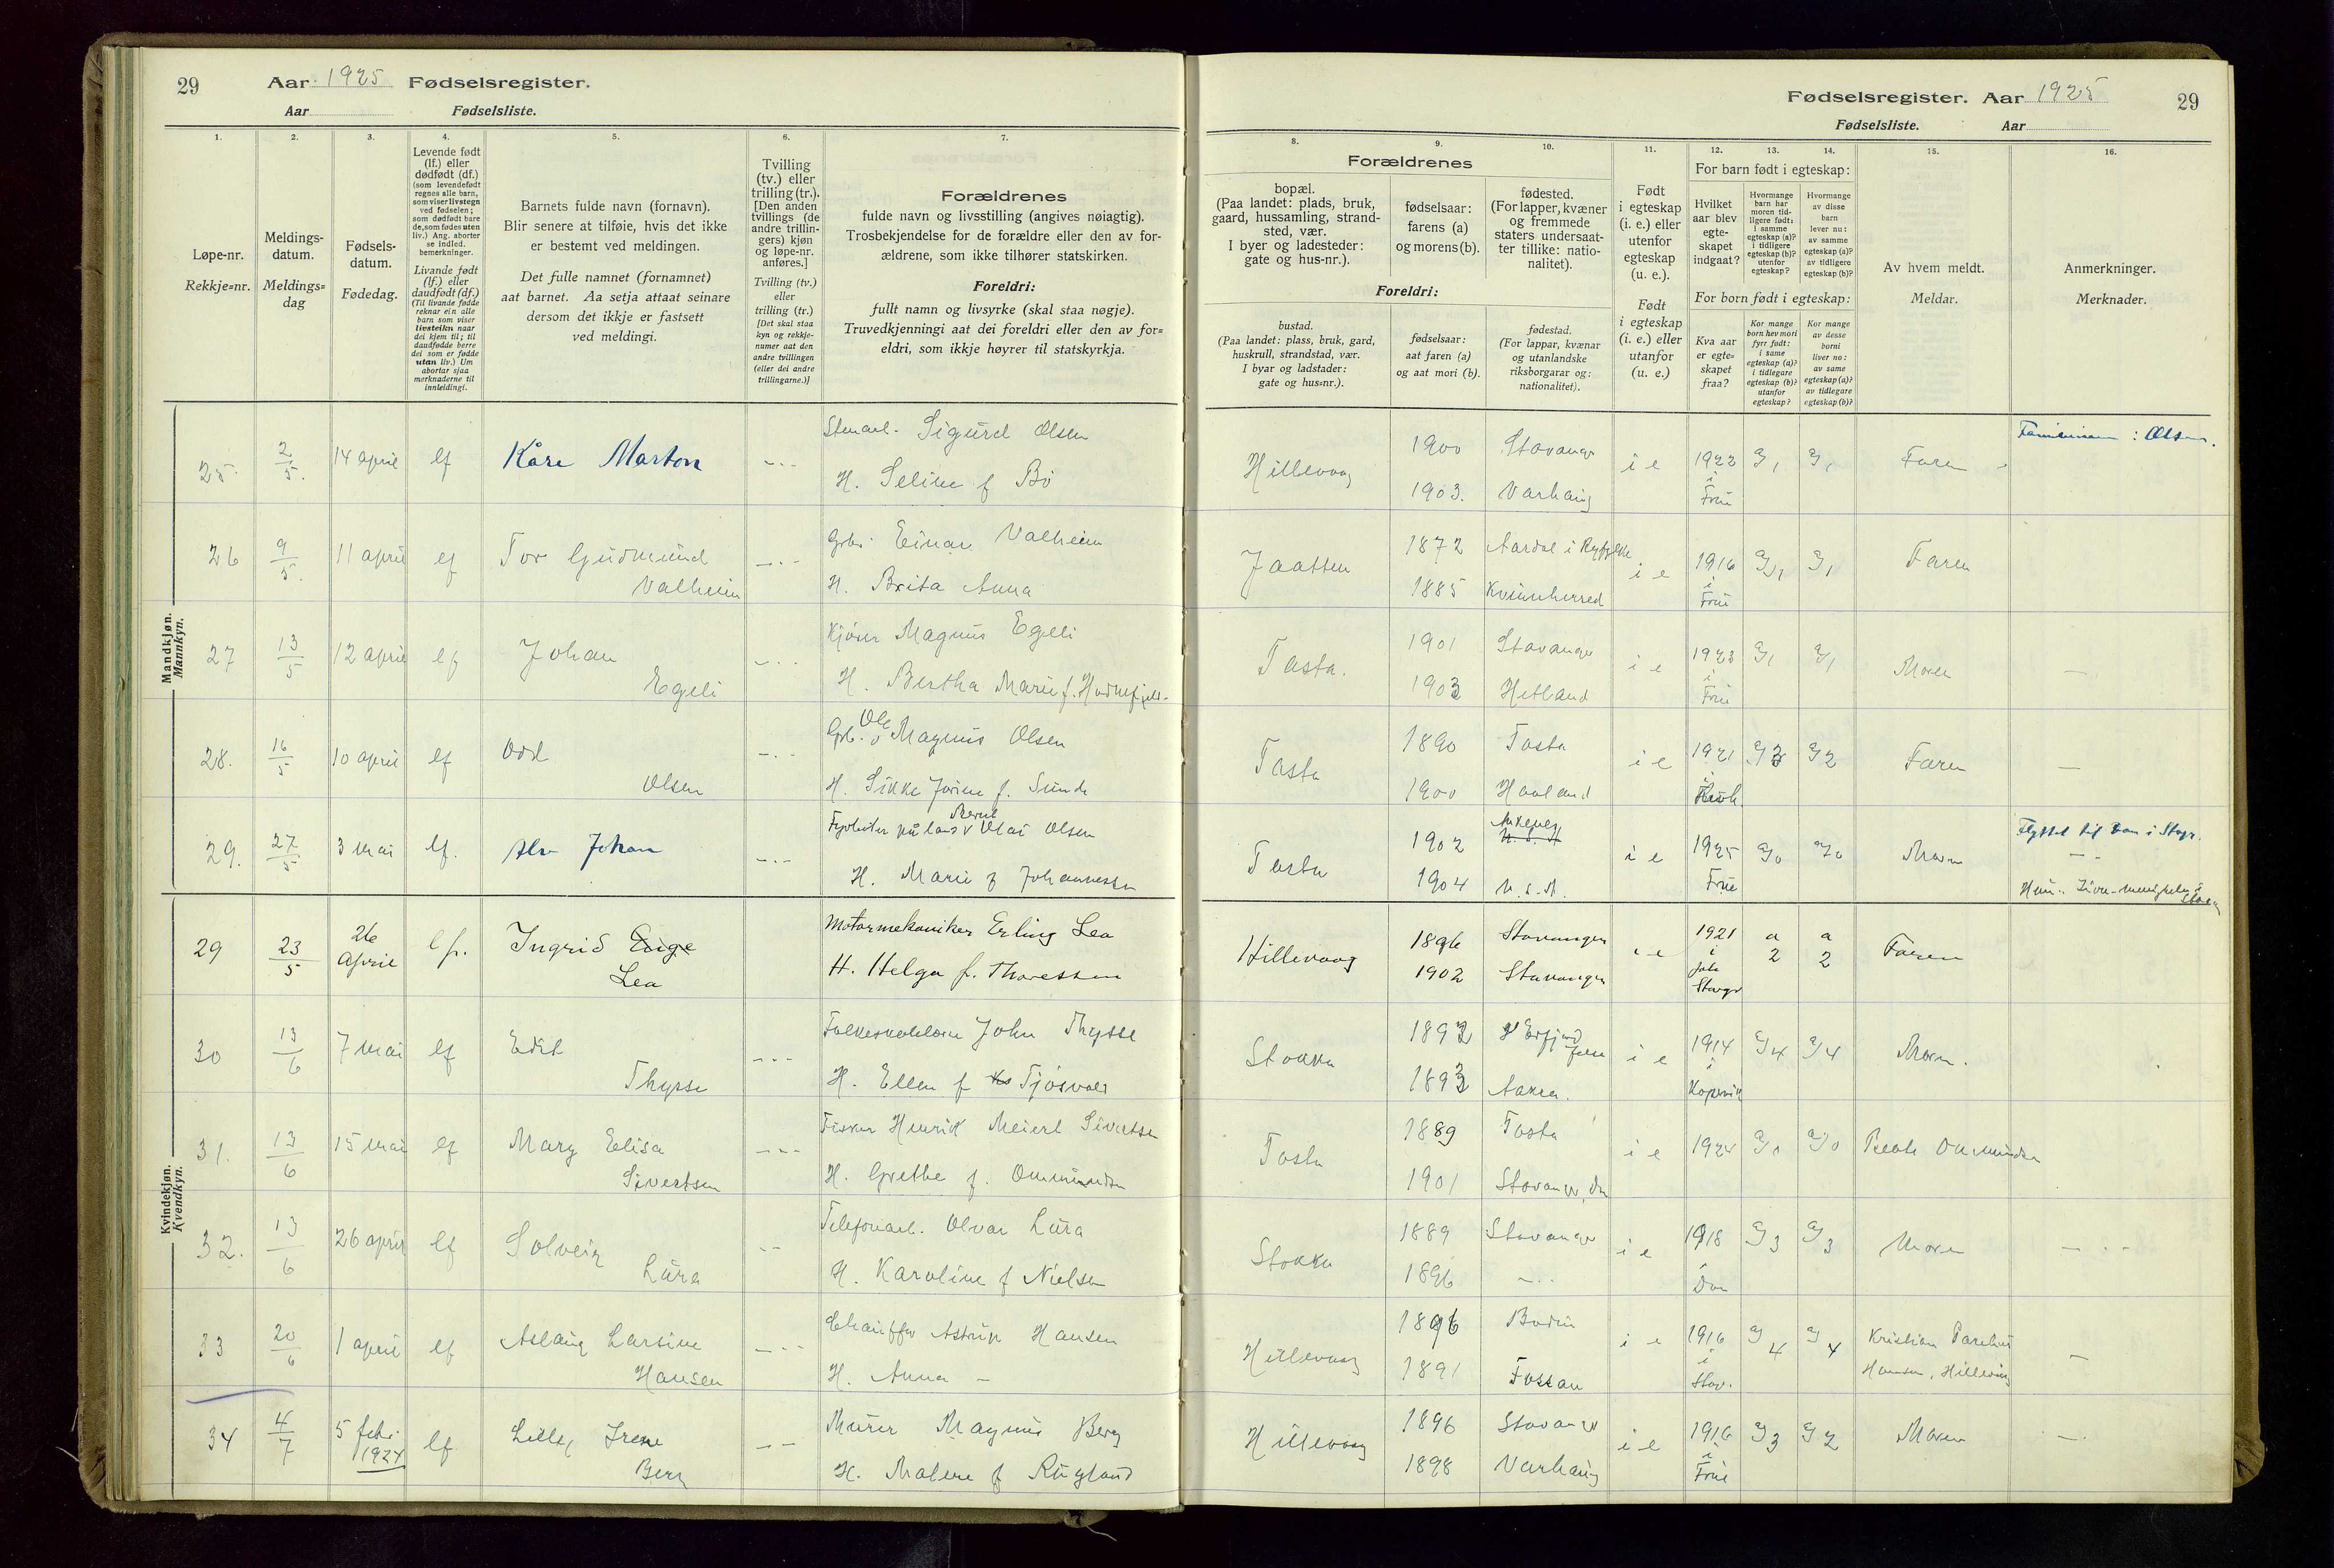 29 Aar 1925 Fødselsregister.
Aar Fødselsliste.
1.
2.
3.
4.
5.
6.
7.
Løpe-nr.
Rekkje=nr.
Meldings-
datum.
Meldings=
dag
Fødsels-
datum.
Fødedag.
Levende født
(lf.) eller
dødfødt (df.)
(som levendefødt
regnes alle barn,
som viser livstegn
ved fødselen;
som dødfødt bare
de, som fødes uten
liv.) Ang. aborter
se indled.
bemerkninger.
Livande født
(lf.) eller
daudfødt (df.)
(Til livande fødde
reknar ein alle
barn som viser
livsteikn naar
dei kjem til; til
daudfødde berre
dei som er fødde
utan liv.) Um
abortar sjaa
merknaderne til
innleidingi.
Barnets fulde navn (fornavn).
Blir senere at tilføie, hvis det ikke
er bestemt ved meldingen.
Det fulle namnet (fornamnet)
aat barnet. Aa setja attaat seinare
dersom det ikkje er fastsett
ved meldingi.
Tvilling
(tv.) eller
trilling (tr.).
[Den anden
tvillings (de
andre trillin-
gers) kjøn
og løpe-nr.
anføres.]
Tvilling (tv.)
eller
trilling (tr.)
[Det skal staa
kyn og rekkje-
numer aat den
andre tvillingen
(eller dei andre
trillingarne.)]
Forældrenes
fulde navn og livsstilling (angives nøiagtig).
Trosbekjendelse for de forældre eller den av for-
ældrene, som ikke tilhører statskirken.
Foreldri:
fullt namn og livsyrke (skal staa nøgje).
Truvedkjenningi aat dei foreldri eller den av for=
eldri, som ikkje høyrer til statskyrkja.
Mandkjøn.
Mannkyn.
25. 2/5. 14 april lf Kåre Marton Stenarb. Sigurd Olsen
H. Seline f Bø
26 9/5. 11 april lf Tor Gudmund Grbr. Einar Valheim
Valheim H. Brita Anna
27 13/5 12 april lf Johan Kjører Magnus Egeli
Egeli H. Bertha Marie f.
28. 16/5 10 april lf Odd Grb. Ole Magnus Olsen
Olsen H. Sikke Jorine f. Sunde
29. 27/5 3 mai lf. Alv Johan Fyrbøter Bernt Olai Olsen
H. Marie f Johannessen
Kvindekjøn.
Kvendkyn.
29 23/5 26 April lf. Ingrid Motormekaniker Erling Lea
Lea H. Helga f. Thoressen
30 13/6 7 mai lf Edit John Thysse
Thysse H. Ellen f Tjøsvold
31. 13/6 15 mai lf Mary Elisa Fisker Henrik Meiert Sivertsen
Sivertsen H. Grethe f. Ommundsen
32. 13/6 26 april lf Solveig Telefonarb. Olvar Lura
Lura H. Karoline f Nielsen
33 20/6 1 april lf Aslaug Larsine Chauffør Astrup Hansen
Hansen H. Anna -
34 4/7 5 febr. 1924 lf Lilly Irene Murer Magnus Berg
Berg H. Malene f Rugland
Fødselsregister. Aar 1925 29
Fødselsliste. Aar
8.
9.
10.
11.
12.
13.
14.
15.
16.
Forældrenes
bopæl.
(Paa landet: plads, bruk,
gaard, hussamling, strand-
sted, vær.
I byer og ladesteder:
gate og hus-nr.).
fødselsaar:
farens (a)
og morens (b).
fødested.
(For lapper, kvæner
og fremmede
staters undersaat-
ter tillike: natio-
nalitet).
Foreldri:
bustad.
(Paa landet: plass, bruk, gard,
huskrull, strandstad, vær.
I byar og ladstader:
gate og hus=nr.).
fødselsaar:
aat faren (a)
og aat mori (b).
fødestad.
(For lappar, kvænar
og utanlandske
riksborgarar og:
nationalitet).
Født
i egteskap
(i. e.) eller
utenfor
egteskap
(u. e.).
Født
i egteskap
(i. e.) eller
utanfor
(u. e.)
For barn født i egteskap:
Hvilket
aar blev
egte-
skapet
indgaat?
Hvormange
barn har
moren tid-
ligere født:
i samme
egteskap (a)?
i tidligere
egteskap (b)?
utenfor
egteskap?
Hvormange
av disse
barn
lever nu:
av samme
egteskap (a)?
av tidligere
egteskap (b)?
For born født i egteskap:
Kva aar
er egte-
skapet
fraa?
Kor mange
born hev mori
fyrr født:
i same
egteskap (a)?
i tidlegare
egteskap (b)?
utanfor
egteskap?
Kor mange
av desse
borni
liver no:
av same
egteskap (a)?
av tidlegare
egteskap (b)?
Av hvem meldt.
Meldar.
Anmerkninger.
Merknader.
Hillevaag 1900 Stavanger i e 1922 i Frue a/1 a/1 Faren Familienavn: Olsen.
1903. Varhaug
Jaatten 1872 Aardal i Ryfylke i e 1916 i Frue a/1 Faren
1885 Kvinnherred
Tasta. 1901 Stavanger i e 1923 i Frue a/1 a/1 Moren —
1903 Hetland
Tasta 1890 Tasta i e 1921 a/2 Faren —
1900 Haaland
Tasta 1902 i e 1925 Frue a/0 a/0 Moren Flyttet til
1904 U.S.A.
Hillevaag 1896 Stavanger i e 1921 i a 2 a 2 Faren
1902 Stavanger
Stokka 1892 i e 1914 i Kopervik a/4 a/4 Moren.
1893 Aakra.
Tasta 1889 Tasta i e 1924 a/0 a/0 Beate Ommundsen
1901 Stavanger,
Stokka 1889 Stavanger i e 1918 i Dom a/3 a/3 Moren — - -
1896 — - -
Hillevaag 1896 Bodin i e 1916 i Stav. a/4 a/4 Kristian Parelius
1891 Fossan Hansen, Hillevåg —
Hillevaag 1896 Stavanger i e 1916 i Frue a/3 a/2 Moren —
1898 Varhaug